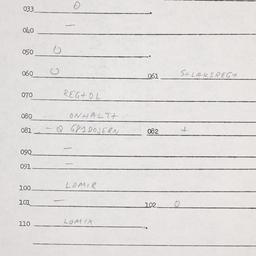 033 0
040 —
050 0
060 0 061 S+LAKIREG+
070 REG+OL
080 ONHALT+
081 - 0 GPIDOJERN 082 +
090 —
091 —
100 LOMIR
101 — 102 0
110 LOMIX